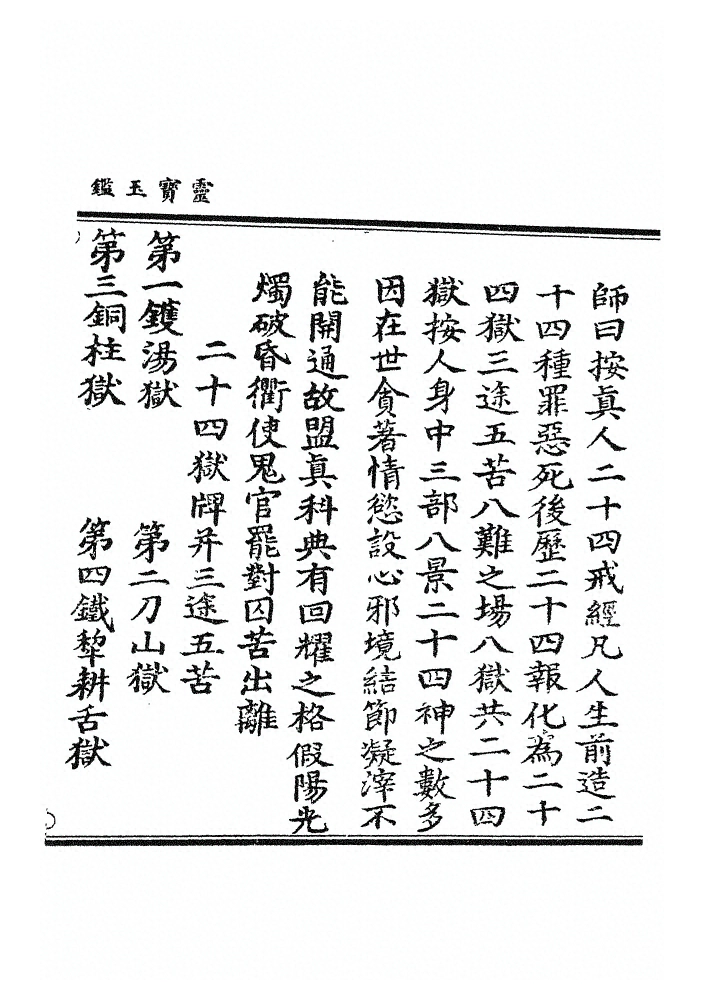 靈寶玉鑑
師曰按眞人二十四戒經凡人生前造二
十四種罪惡死後歷二十四報化為二十
四獄三途五苦八難之場八獄共二十四
獄按人身中三部八景二十四神之數多
因在世貪著情慾設心邪境結節凝滓不
能開通故盟眞科典有回耀之格假陽光
燭破昏衢使鬼官罷對囚苦出離
二十四獄牌并三途五苦
第一鑊湯獄 第二刀山獄
第三銅柱獄 第四鐵犂耕舌獄